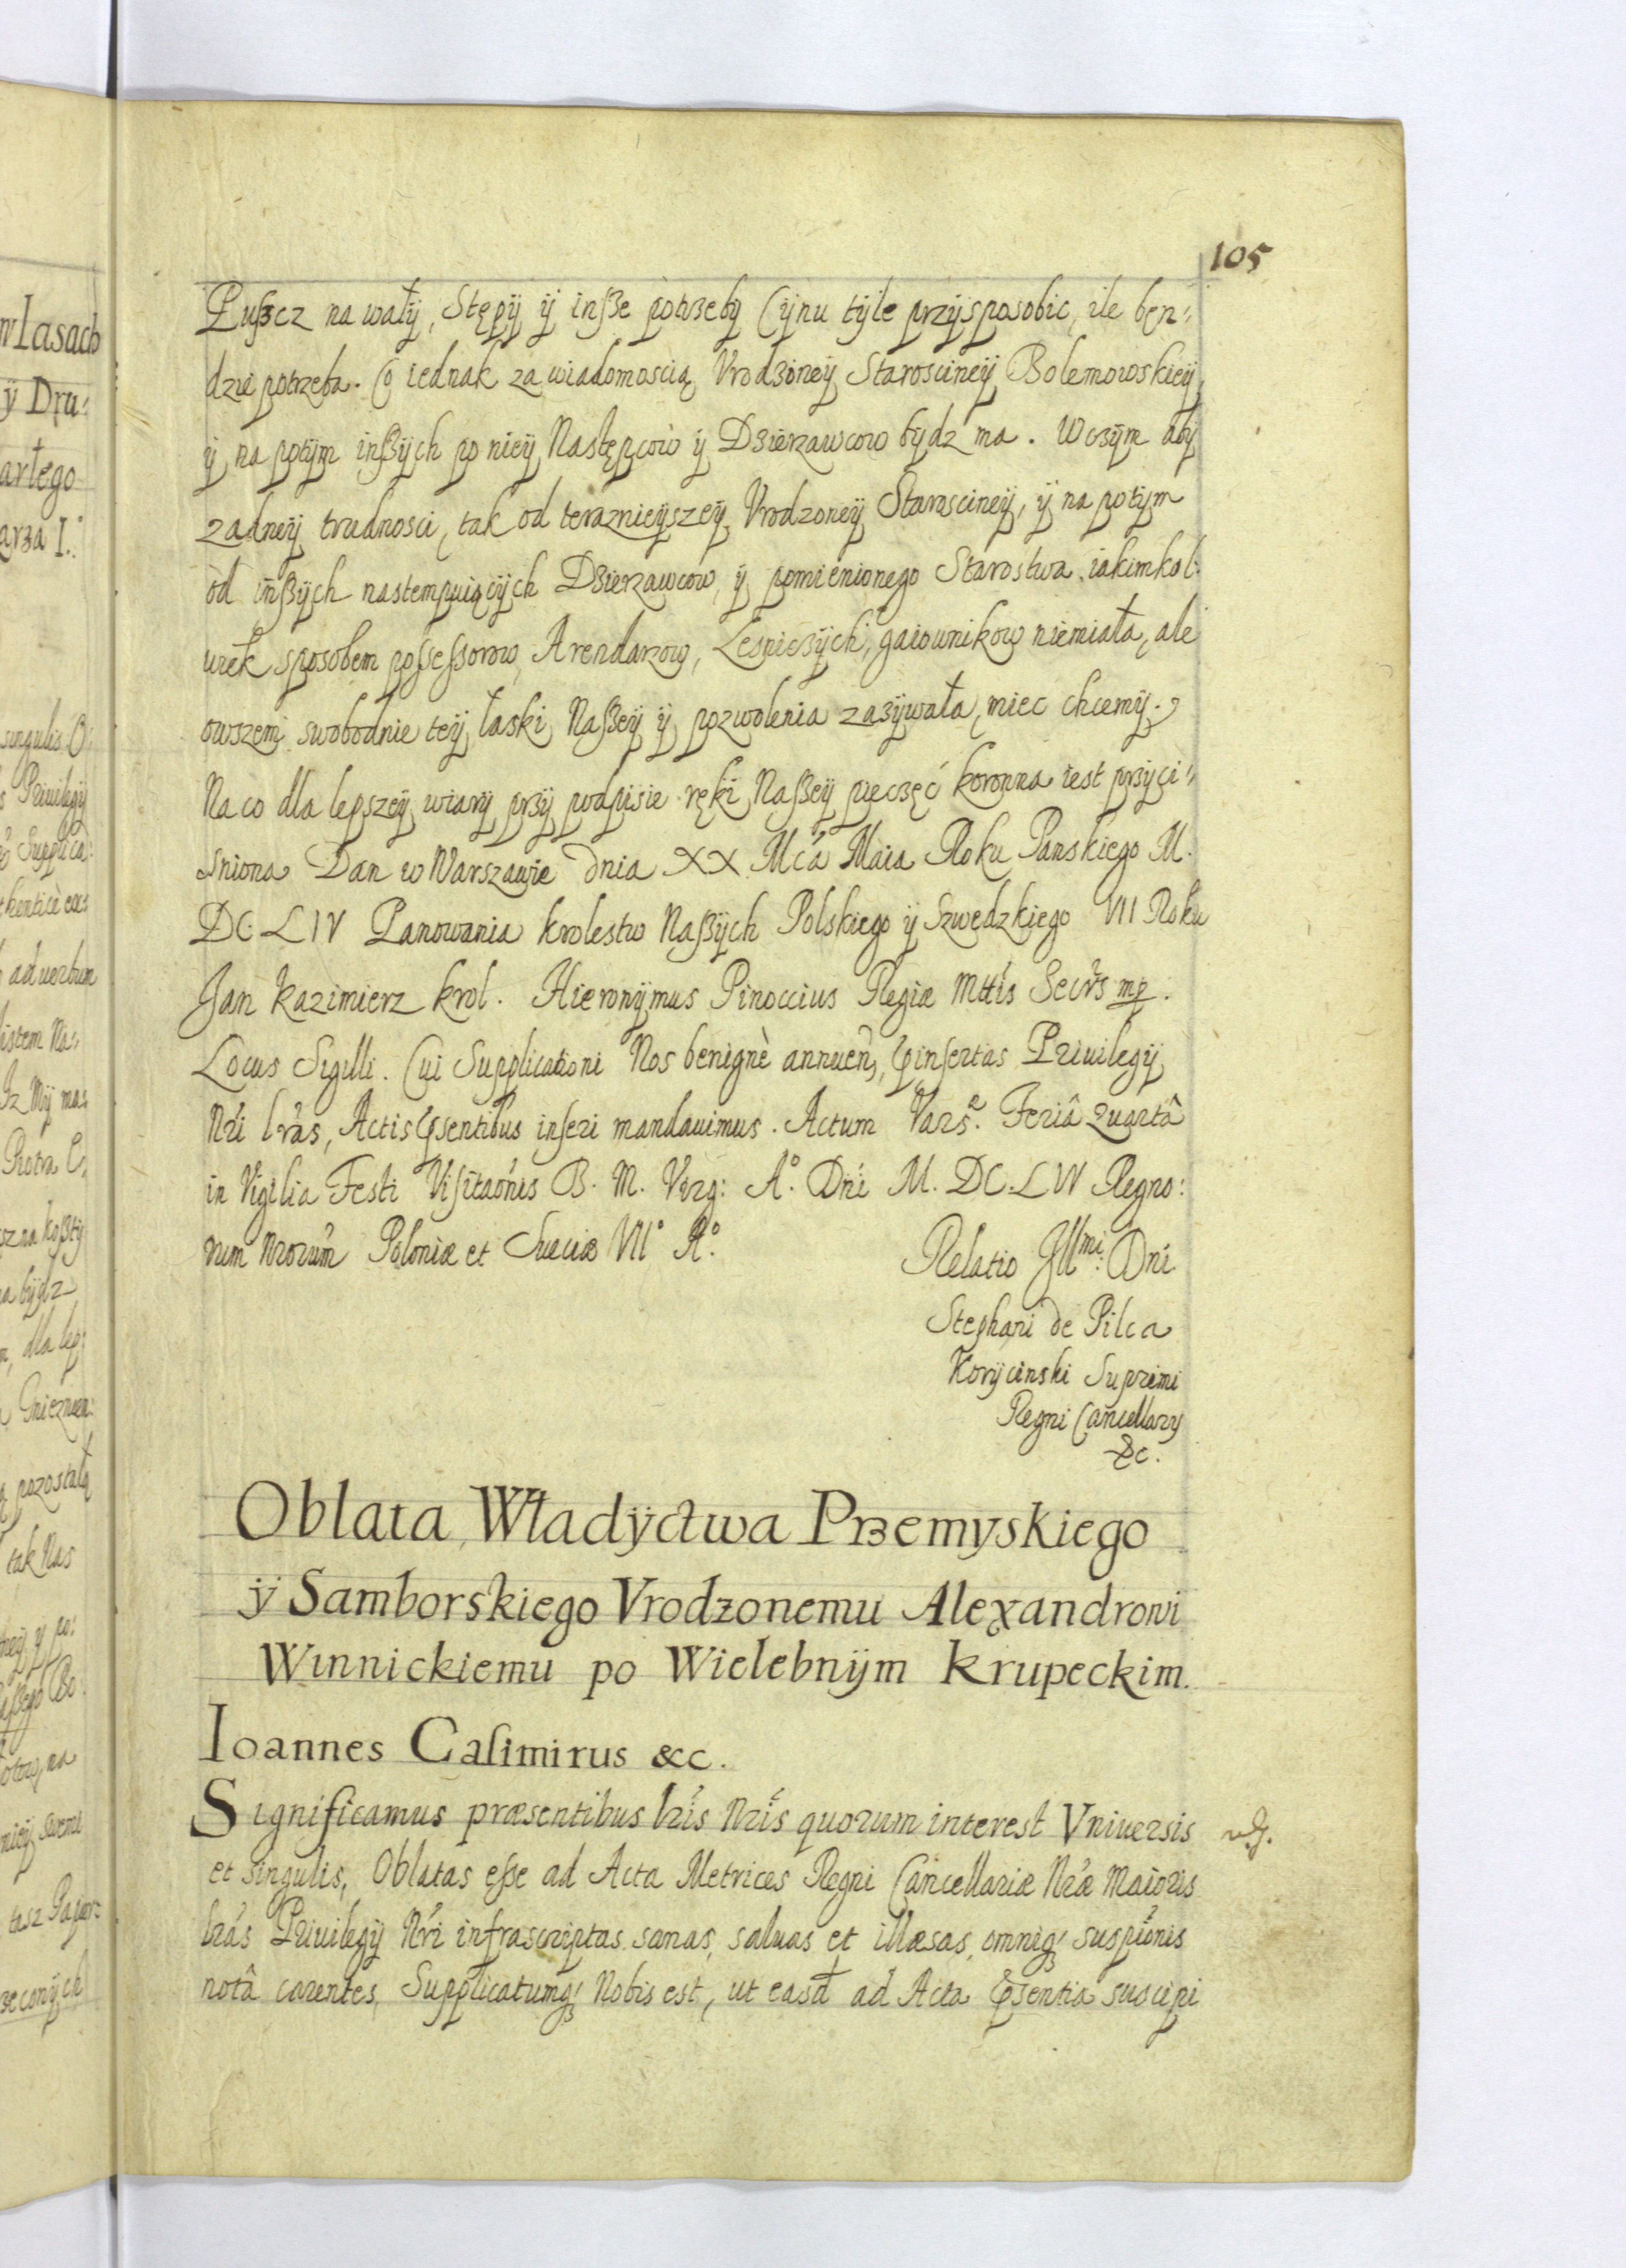 105
Puszcz na wały, Stępÿ ÿ insze potrzebÿ Cÿnu tÿle przÿsposobic, ile ben⸗
dzie potrzeba. Co iednak za wiadomoscią Vrodzoneÿ Staroscineÿ Bolemowskieÿ
ÿ na potÿm inszÿch po nieÿ Następcow ÿ Dzierzawcow bÿdź ma. W czÿm abÿ
zadneÿ trudnosci, tak od teraznieÿszeÿ Vrodzoneÿ Staroscineÿ, ÿ na potÿm
od inszÿch nastempuiącÿch Dzierzawcow, ÿ pomienionego Starostwa iakimkol⸗
wiek sposobem possessorow, Arendarzow, Lesniczÿch, gaiownikow niemiała, ale
owszem swobodnie teÿ łaski Naszeÿ ÿ pozwolenia zazÿwała, miec chcemÿ.
Na co dla lepszeÿ wiarÿ przÿ podpisie ręki Naszeÿ pieczęć koronna iest przÿci⸗
sniona Dan w Warszawie dnia XX Mcá Maia Roku Panskiego M.
DC. LIV Panowania krolestw Naszÿch Polskiego ÿ Szwedzkiego VII Roku
Jan Kazimierz krol. Hieronÿmus Pinoccius Regiæ Mttis Secrs mp.
Locus Sigilli. Cui Supplicationi Nos benignè annuen, pinsertas Priuilegÿ
Nri lras, Actis psentibus inseri mandauimus. Actum Vars. Feriâ Quartâ
in Vigilia Festi Visitaonis B. M. Virg: A° Dni M. DC. LIV Regno:
rum Nrorum Poloniæ et Sueciæ VII° A°.
Relatio Illmi. Dni
Stephani de Pilca
Korÿcinski Supremi
Regni Cancellarÿ
&c.
Oblata Władÿctwa Przemyskiego
ÿ Samborskiego Vrodzonemu Alexandrowi
Winnickiemu po Wielebnÿm Krupeckim.
Ioannes Casimirus &c.
Significamus præsentibus lris Nris quorum interest Vniuersis
et singulis, Oblatas esse ad Acta Metrices Regni Cancellariæ Nræ Maioris
lras Priuilegÿ Nri infrascriptas sanas, saluas et illæsas, omniq; suspionis
notâ carentes, Supplicatumq; Nobis est, ut easd ad Acta psentia suscipi